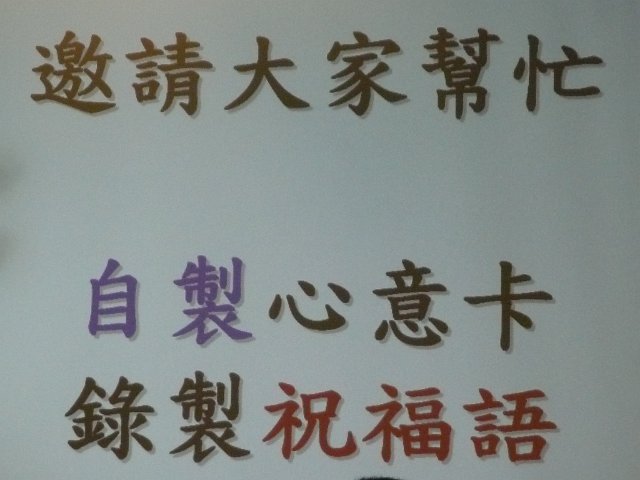 邀請大家幫忙
自製心意卡
錄製祝福語